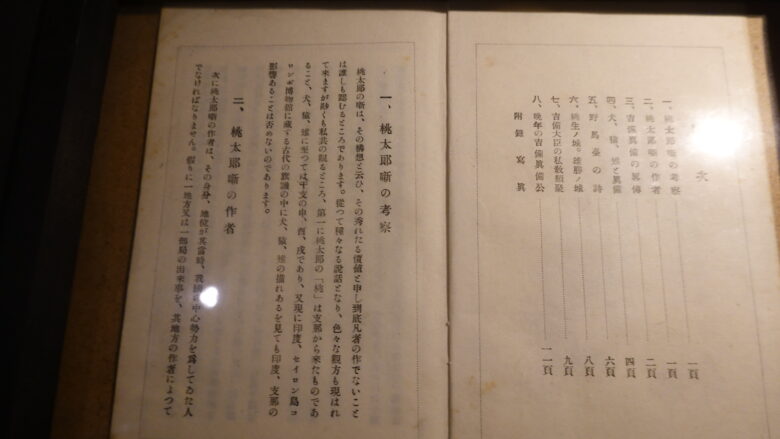 次
一、桃太郎噺の考察 一頁
二、桃太郎噺の作者 一頁
三、吉備眞備の略傳 二頁
四、犬、猿、雉と眞備 四頁
五、野馬臺の詩 六頁
六、桃生ノ城。雄勝ノ城 八頁
七、吉備大臣の私敎類聚 九頁
八、晩年の吉備眞備公 一一頁
附錄寫眞
一、桃太郎噺の考察
桃太郎の噺は、その構想と云ひ、その秀れたる價値と申し到底凡者の作でないこと
は誰しも認むるところであります。從つて種々なる說話となり、色々な觀方も現はれ
て來ますが尠くも私共の觀るところ、第一に桃太郎の「桃」は支那から來たものであ
ること、犬、猿、雉に至つては干支の申、酉、戌であり、又現に印度、セイロン島コ
ロンボ博物館に藏する古代の裝識の中に犬、猿、雉の描れあるを見ても印度、支那の
影響あることは否めないのであります。
二、桃太郎噺の作者
次に桃太郎噺の作者は、その身分、地位が其當時、我國の中心勢力を爲してゐた人
でなければなりません。假りに一地方又は一部局の出來事を、其地方の作者によつて